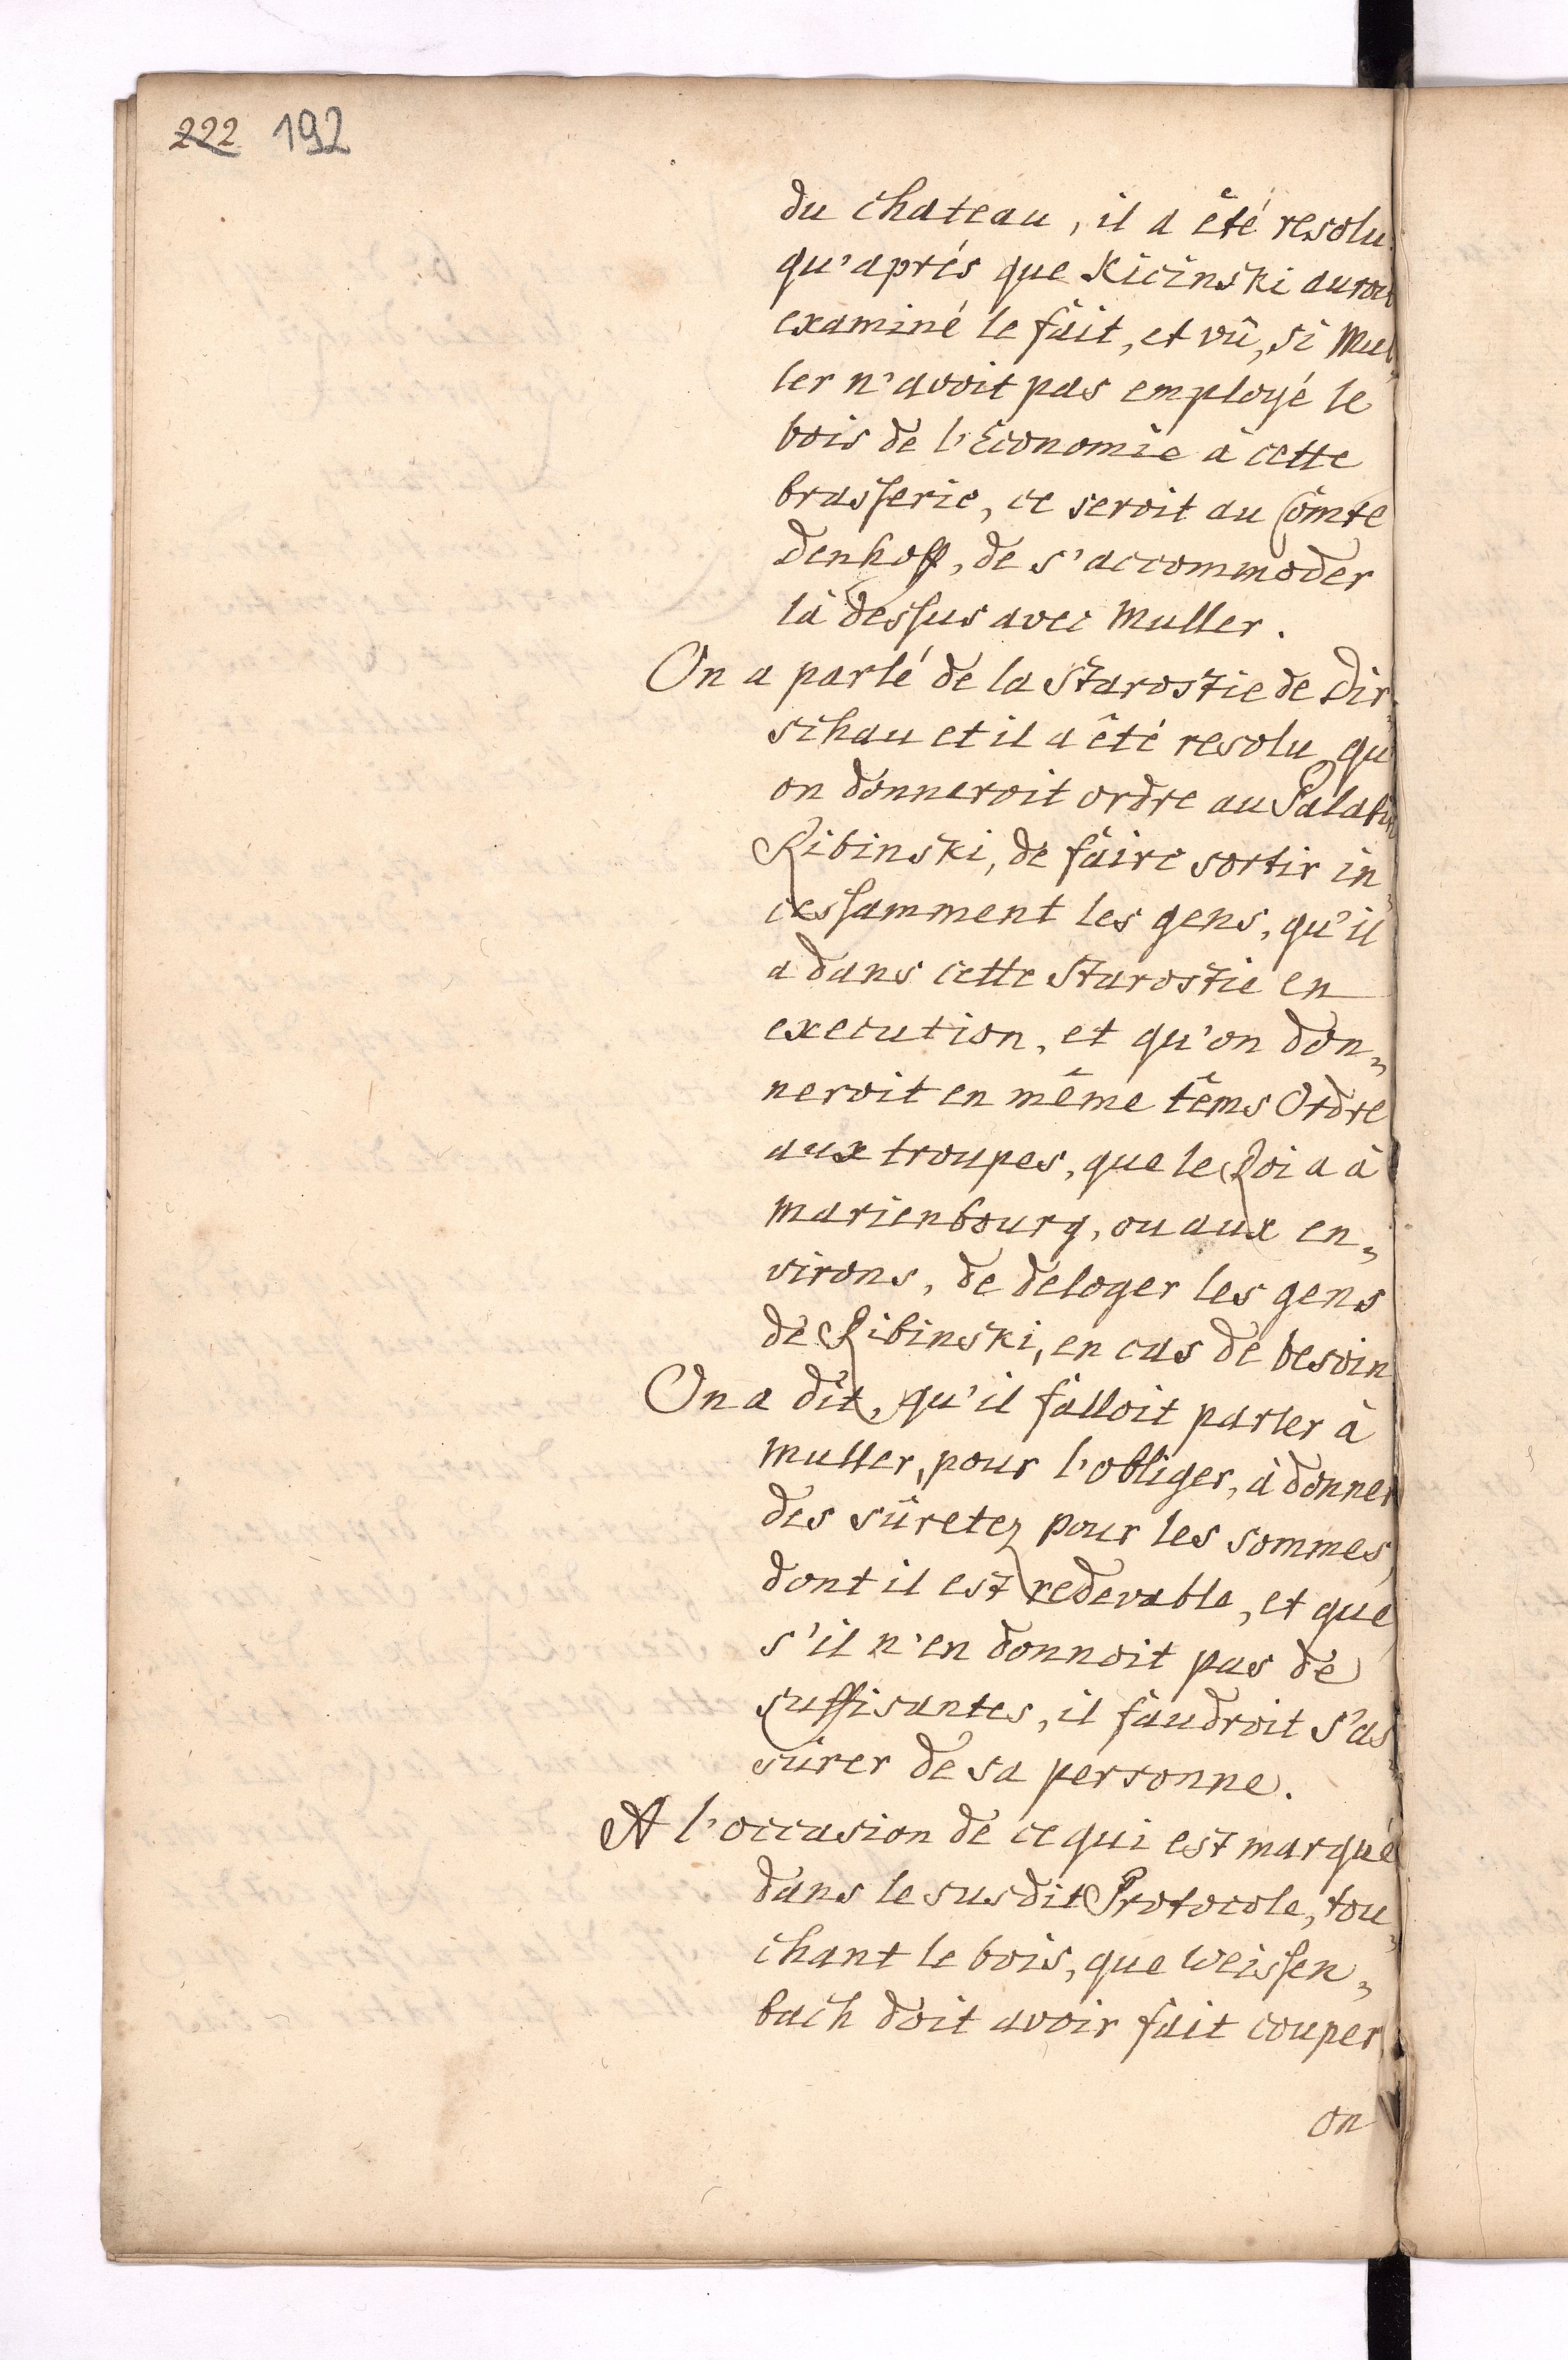 222 192
du chateau, il a êté resolu
qu'aprés que Kicinski auroit
examiné le fait, et vû, si Mul
ler n'avoit pas employé le
bois de l'Economie à cette
brasserie, ce seroit au Comte
Denhoff, de s'accommoder
là dessus avec Muller.
On a parlé de la Starostie de Dir„
schau et il a êté resolu qu'
on donneroit ordre au Palatin
Ribinski, de faire sortir in„
cessamment les gens, qu'il
a dans cette Starostie en
execution, et qu'on don„
neroit en même têms Ordre
aux troupes, que le Roi a à
Marienbourg, ou aux en„
virons, de deloger les gens
de Ribinski, en cas de besoin
On a dit, qu'il falloit parler à
Muller, pour l'obliger, à donner
des sûretez pour les sommes,
dont il est redevable, et que
s'il n'en donnoit pas de
suffisantes, il faudroit s'as
sûrer de sa personne.
A l'occasion de ce qui est marqué
dans le susdit Protocole, tou„
chant le bois, que Weissen„
bach doit avoir fait couper,
on